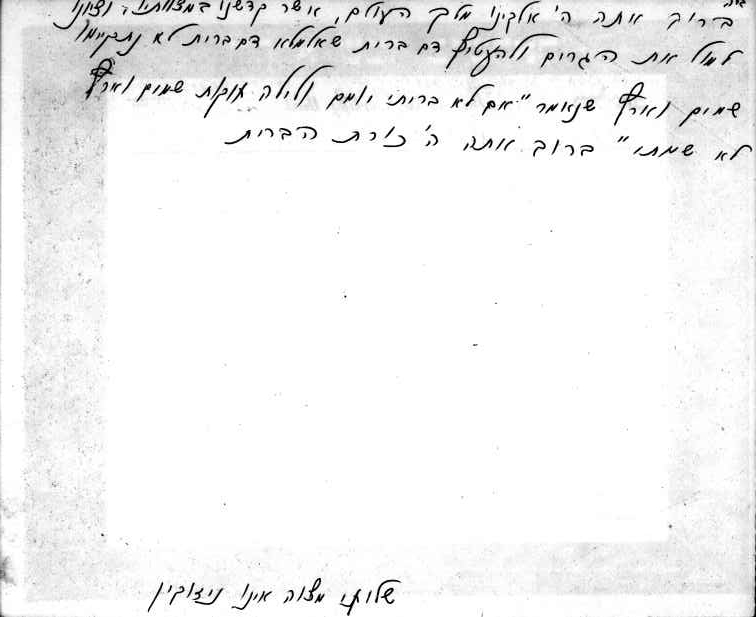 ברוך אתה ה' אלקינו מלך העולם, אשר קדשנו במצוותיו וצונו
למול את הגרים ולהטיף דם ברית שאלמלא דם ברית לא נתקיימו
שמים וארץ שנאמר "אם לא בריתי יומם ולילה חוקות שמים וארץ
לא שמתי" ברוך אתה ה' כורת הברית
שלוחי מצוה אינו ניזוקין